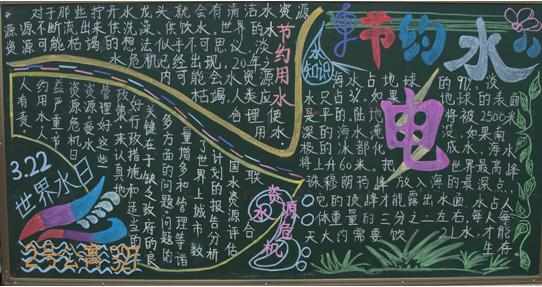 节约水
电
对于那些拧开水龙头就会有清洁水资源
源源不断流出来供洗澡、供饮水,世界的水
资源可能枯竭的想法似乎不可思议。淡
水危机已经出现,20年
内可能会
枯竭,
人类应
合理
使用
节约用水
水知识
海水占地球的97%,淡
水只占3%,如果地球的表面
是平的,陆地将被2500米
深的海水淹没,如果南
极的冰都化成水,海水
将上升60米,把世界最高峰
珠穆朗玛峰放入海的最深点,
它的顶峰才能露出水面,水占人
体重量的三分之二左右,每人每
天大门需要饮2L水,才能
生存。
人人有责。
节约用水
严重,
资源危机日益
资源受水
管理好这些
政策,来认真地
好行政措施和适当的
关键在于缺乏政府的良
多方面的问题,问题的
量增多和管理等诸
了世界上城市数
计划的报告分析
国水资源评估
联合
水资源危机
3.22
世界水日